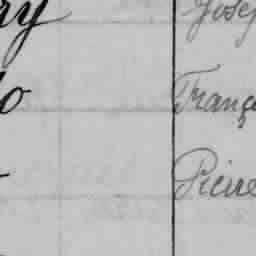 ry Josep
lo Franço
Pierre